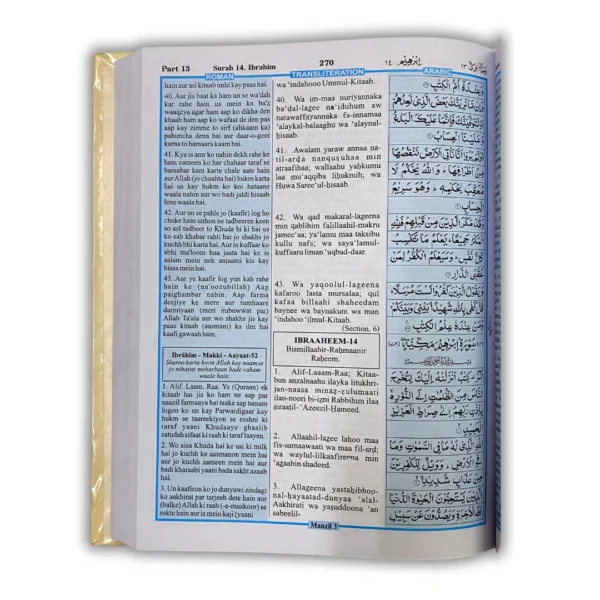 Part 13 Surah 14. Ibrahim 270 ابرٰهيم ١٤ ١٣
ROMAN
hain aur asl kitaab unhi kay paas hai.
40. Aur jis baat ka ham un se wa'dah
kar rahe hain us mein ka ba'z
waaqeya agar ham aap ko dikha den
khaah ham aap ko wafaat de den pas
aap kay zimme to sirf (ahkaam ka)
pahuncha dena hai aur daar-o-geer
karna to hamaara kaam hai.
41. Kya is amr ko nahin dekh rahe ke
ham zameen ko har chahaar taraf se
baraabar kam karte chale aate hain
aur Allah (jo chaahta hai) hukm karta
hai us kay hukm ko koi hataane
waala nahin aur wo badi jaldi hisaab
lene waala hai.
42. Aur un se pahle jo (kaafir) log ho
chuke hain unhon ne tadbeeren keen
so asl tadbeer to Khuda hi ki hai us
ko sab khabar rahti hai jo shakhs jo
kuchh bhi karta hai. Aur in kuffaar ko
abhi ma'loom hua jaata hai ke is
aalam mein nek anjaami kis kay
hissa mein hai.
43. Aur ye kaafir log yun kah rahe
hain ke (na'oozubillah) Aap
paighambar nahin. Aap farma
deejiye ke mere aur tumhaare
darmiyaan (meri nubuwwat par)
Allah Ta'ala aur wo shakhs jis kay
paas kitaab (aasmani) ka ilm hai
kaafi gawaah hain.
Ibrâhim - Makki - Aayaat-52
Shuroo karta hoon Allah kay naam se
jo nihayat meharbaan bade raham
waale hain.
1. Alif. Laam. Raa. Ye (Quraan) ek
kitaab hai jis ko ham ne aap par
naazil farmaaya hai taake aap tamaam
logon ko un kay Parwardigaar kay
hukm se taareekiyon se roshni ki
taraf yaani Khudaaye ghaalib
satudah sifaat ki raah ki taraf laayen.
2. Wo aisa Khuda hai ke usi ki milk
hai jo kuchh ke aasmanon mein hai
aur jo kuchh zameen mein hai aur
badi kharaabi yaani bada sakht azaab
hai.
3. Un kaafiron ko jo dunyawi zindagi
ko aakhirat par tarjeeh dete hain aur
(balke) Allah ki raah (-e-mazkoor) se
rokte hain aur is mein kaji (yaani
TRANSLITERATION
wa 'indahooo Ummul-Kitaab.
40. Wa im-maa nuriyannaka
ba'dal-lagee na'iduhum aw
natawaffayannaka fa-innamaa
'alaykal-balaaghu wa 'alaynal-
ḥisaab.
41. Awalam yaraw annaa na-
til-arḍa nanquṣuhaa min
aṭraafihaa; wallaahu yaḥkumu
laa mu'aqqiba liḥukmih; wa
Huwa Saree'ul-ḥisaab.
42. Wa qad makaral-lageena
min qablihim falillaahil-makru
jamee'aa; ya'lamu maa taksibu
kullu nafs; wa saya'lamul-
kuffaaru liman 'uqbad-daar.
43. Wa yaqoolul-lageena
kafaroo lasta mursalaa; qul
kafaa billaahi shaheedam
baynee wa baynakum wa man
'indahoo 'ilmul-Kitaab.
(Section. 6)
IBRAAHEEM-14
Bismillaahir-Raḥmaanir
Raḥeem.
1. Alif-Laaam-Raa; Kitaa-
bun anzalnaahu ilayka litukhri-
jan-naasa minaz-zulumaati
ilan-noori bi-izni Rabbihim ilaa
ṣiraaṭil-'Azeezil-Ḥameed.
2. Allaahil-lagee lahoo maa
fis-samaawaati wa maa fil-arḍ;
wa waylul-lilkaafireena min
'agaabin shadeed.
3. Allageena yastaḥibboo-
nal-ḥayaatad-dunyaa 'alal-
Aakhirati wa yaṣuddoona 'an
sabeelil-
ARABIC
وَعِنْدَهٗٓ اُمُّ الْكِتٰبِ
وَاِنْ مَّا نُرِيَنَّكَ بَعْضَ الَّذِيْ نَعِدُهُمْ
اَوْ نَتَوَفَّيَنَّكَ فَاِنَّمَا عَلَيْكَ الْبَلٰغُ
وَعَلَيْنَا الْحِسَابُ
اَوَلَمْ يَرَوْا اَنَّا نَاْتِي الْاَرْضَ نَنْقُصُهَا
مِنْ اَطْرَافِهَا ۚ وَاللّٰهُ يَحْكُمُ لَا
مُعَقِّبَ لِحُكْمِهٖ ۚ وَهُوَ سَرِيْعُ
الْحِسَابِ
وَقَدْ مَكَرَ الَّذِيْنَ مِنْ قَبْلِهِمْ فَلِلّٰهِ
الْمَكْرُ جَمِيْعًا ۚ يَعْلَمُ مَا تَكْسِبُ
كُلُّ نَفْسٍ ۚ وَسَيَعْلَمُ الْكُفّٰرُ لِمَنْ
عُقْبَى الدَّارِ
وَيَقُوْلُ الَّذِيْنَ كَفَرُوْا لَسْتَ مُرْسَلًا ۚ
قُلْ كَفٰى بِاللّٰهِ شَهِيْدًۢا بَيْنِيْ وَبَيْنَكُمْ
وَمَنْ عِنْدَهٗ عِلْمُ الْكِتٰبِ
سُوْرَةُ اِبْرٰهِيْمَ مَكِّيَّةٌ
الٓرٰ ۚ كِتٰبٌ اَنْزَلْنٰهُ اِلَيْكَ لِتُخْرِجَ
النَّاسَ مِنَ الظُّلُمٰتِ اِلَى النُّوْرِ
بِاِذْنِ رَبِّهِمْ اِلٰى صِرَاطِ الْعَزِيْزِ
الْحَمِيْدِ
اللّٰهِ الَّذِيْ لَهٗ مَا فِي السَّمٰوٰتِ وَمَا
فِي الْاَرْضِ ۚ وَوَيْلٌ لِّلْكٰفِرِيْنَ
مِنْ عَذَابٍ شَدِيْدٍ
الَّذِيْنَ يَسْتَحِبُّوْنَ الْحَيٰوةَ الدُّنْيَا
عَلَى الْاٰخِرَةِ وَيَصُدُّوْنَ عَنْ سَبِيْلِ
Manzil 3